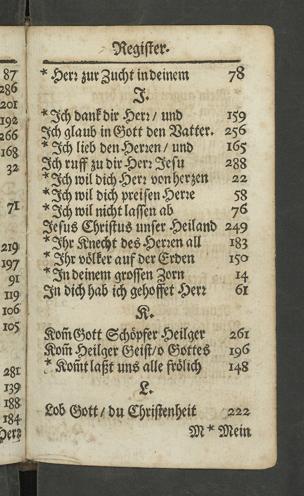 87
286
201
192
266
168
32
71
219
197
91
119
106
105
281
139
188
184
Herz
Register.
* Herz zur Zucht in deinem 78
J.
* Ich dank dir Herz / und 159
Ich glaub in Gott den Vatter. 256
* Ich lieb den Herren / und 165
Ich ruff zu dir Herz Jesu 288
* Ich wil dich Herz von herzen 22
* Ich wil dich preisen Herre 58
* Ich wil nicht lassen ab 76
Jesus Christus unser Heiland 249
* Ihr Knecht des Herren all 183
* Ihr völker auf der Erden 150
* In deinem grossen Zorn 14
In dich hab ich gehoffet Herz 61
K.
Kom̃ Gott Schöpfer Heilger 261
Kom̃ Heilger Geist / o Gottes 196
* Kom̃t laßt uns alle frölich 148
L.
Lob Gott / du Christenheit 222
M * Mein